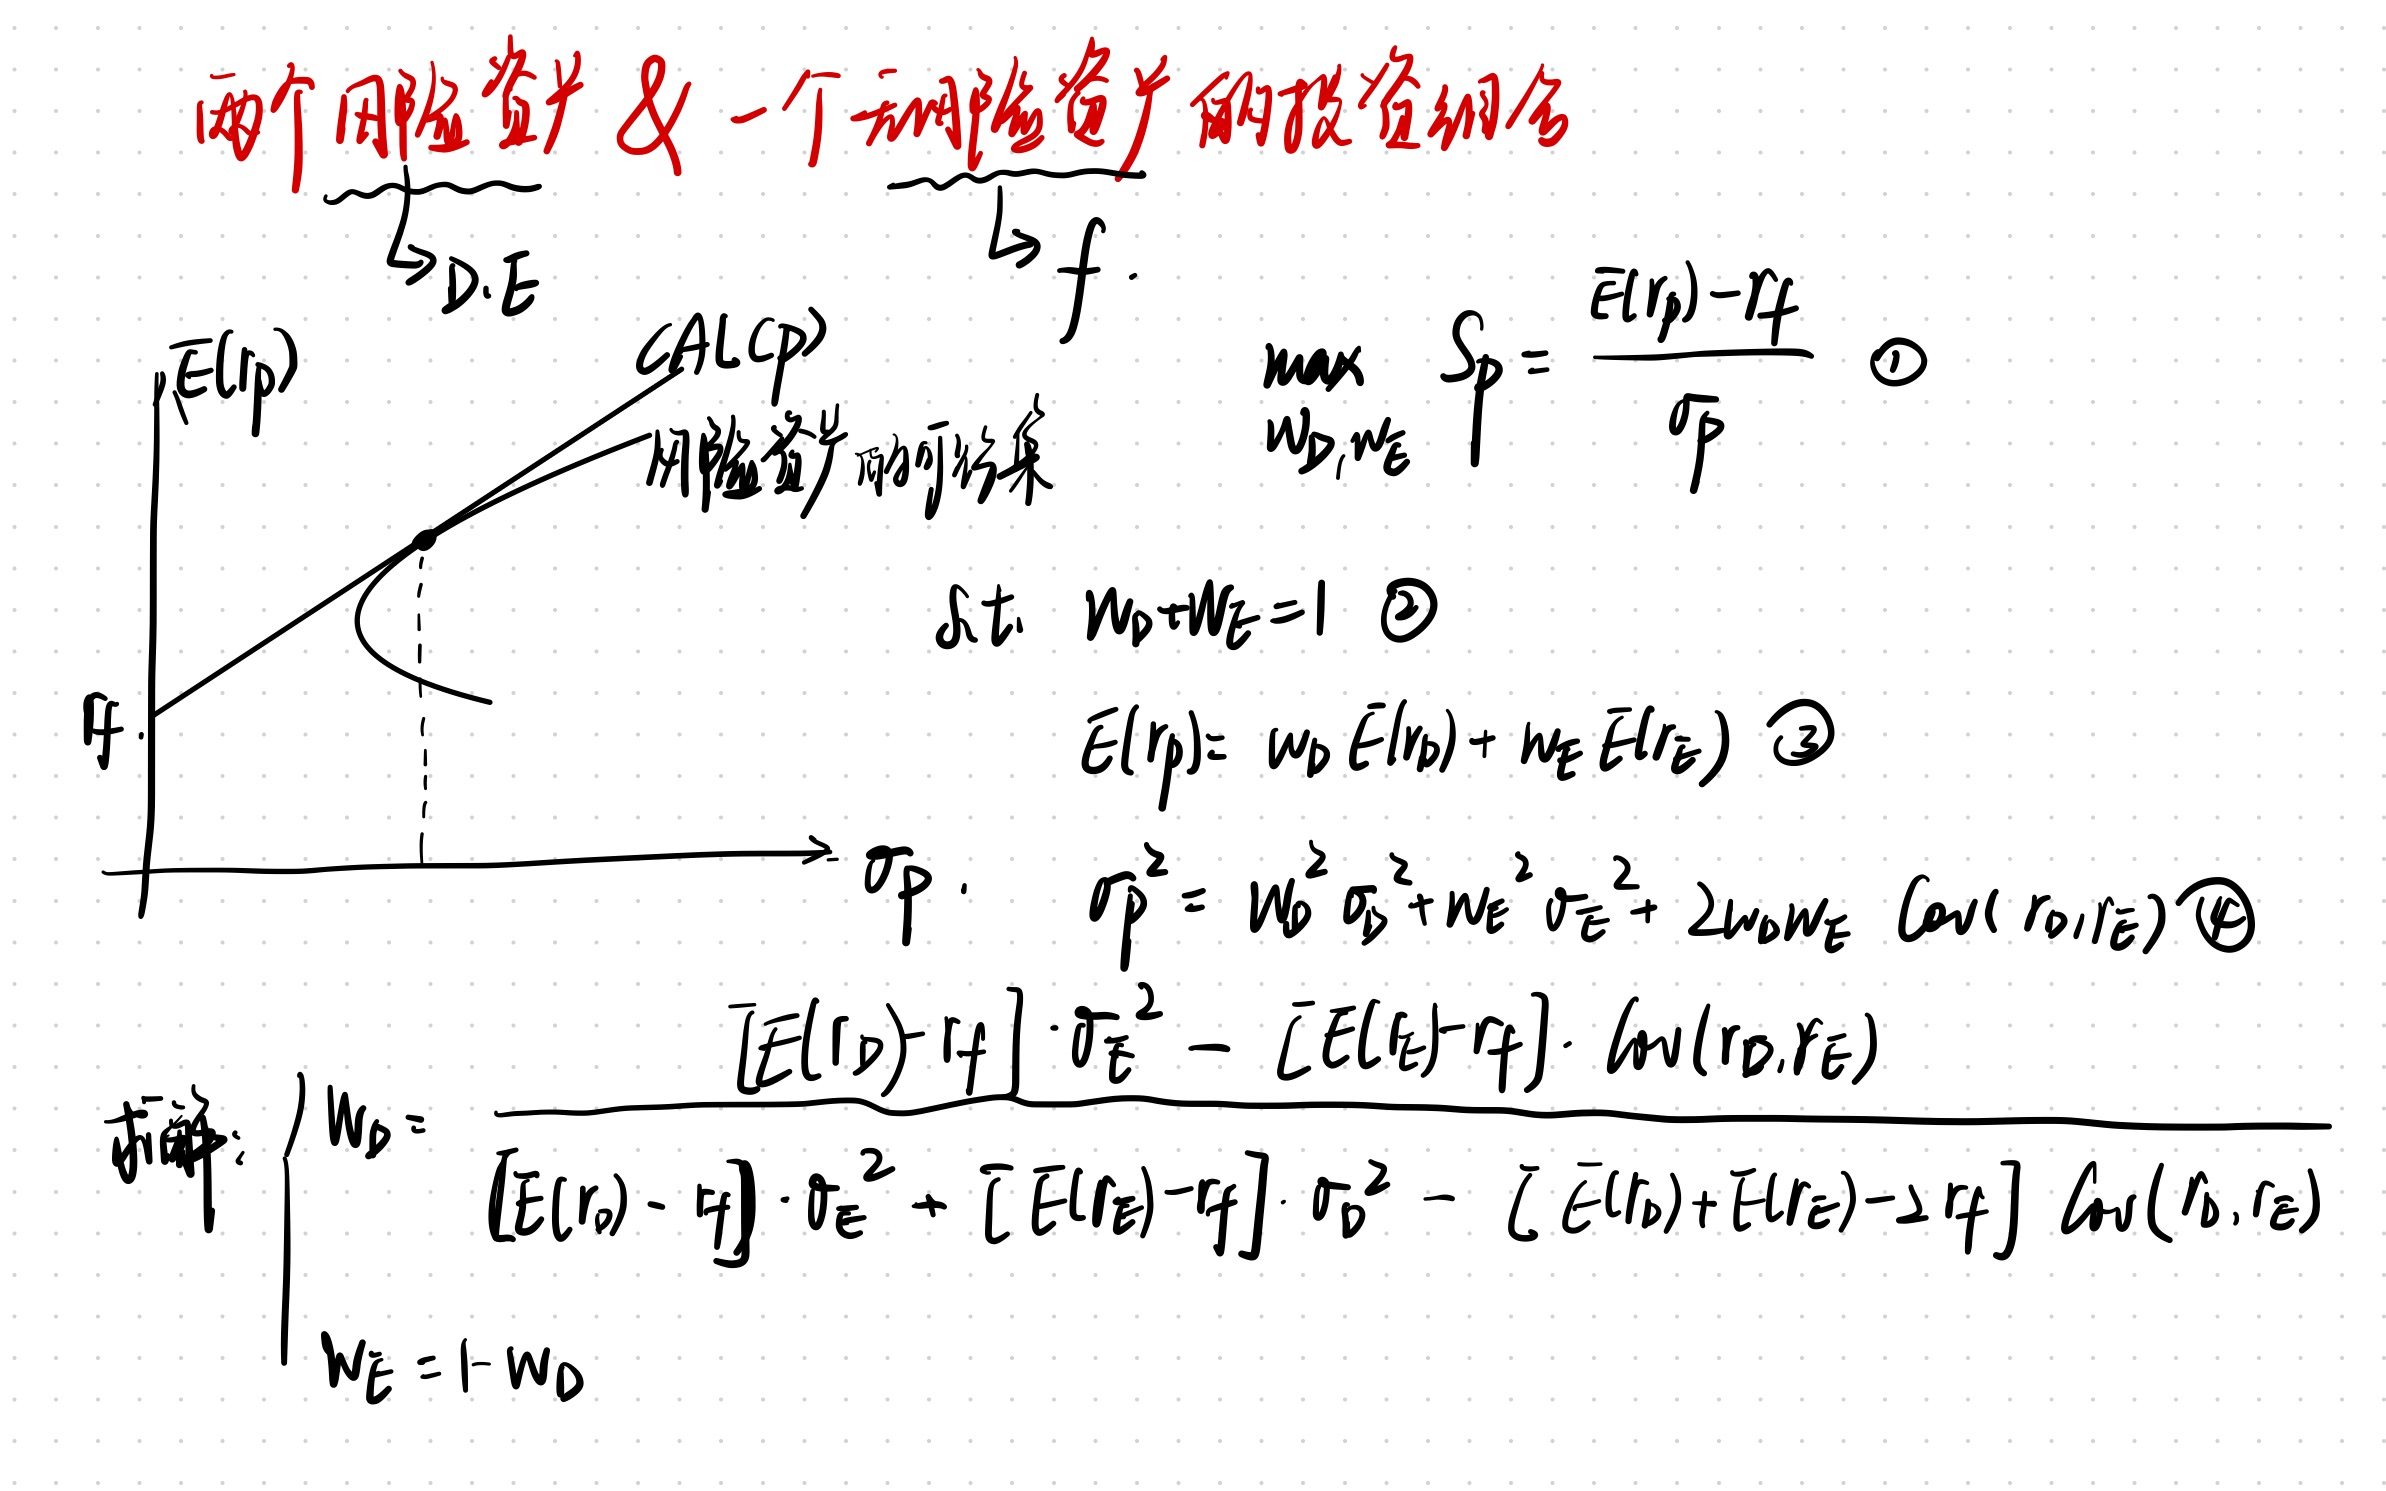 两个风险资产 & 一个无风险资产的投资组合
D.E
f.
E(rp)
CAL(p)
风险资产的可行集
rf.
σp.
max S_p = (E(rp) - rf) / σp ①
w_D, w_E
s.t. w_D + w_E = 1 ②
E(rp) = w_D E(r_D) + w_E E(r_E) ③
σp² = w_D² σ_D² + w_E² σ_E² + 2 w_D w_E Cov(r_D, r_E) ④
求解:
w_D = [E(r_D) - rf] · σ_E² - [E(r_E) - rf] · Cov(r_D, r_E)
[E(r_D) - rf] · σ_E² + [E(r_E) - rf] · σ_D² - [E(r_D) + E(r_E) - 2rf] Cov(r_D, r_E)
w_E = 1 - w_D